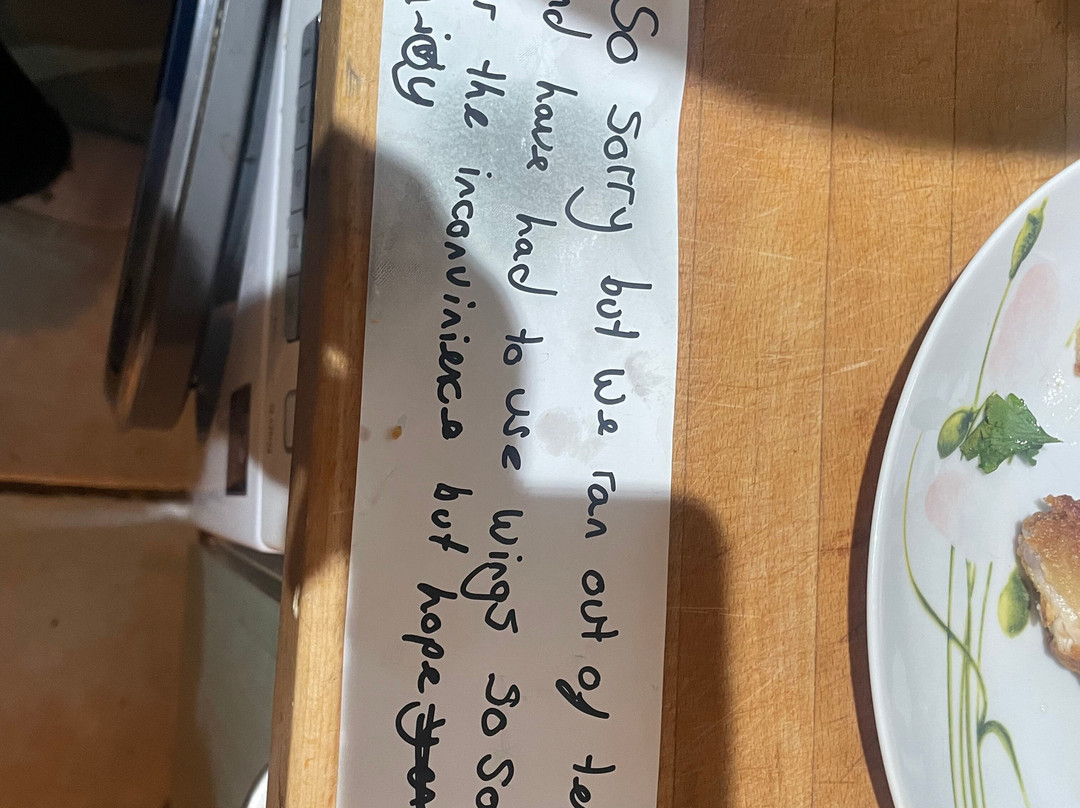 So sorry but we ran out of te
nd have had to use wings so so
r the inconvinience but hope